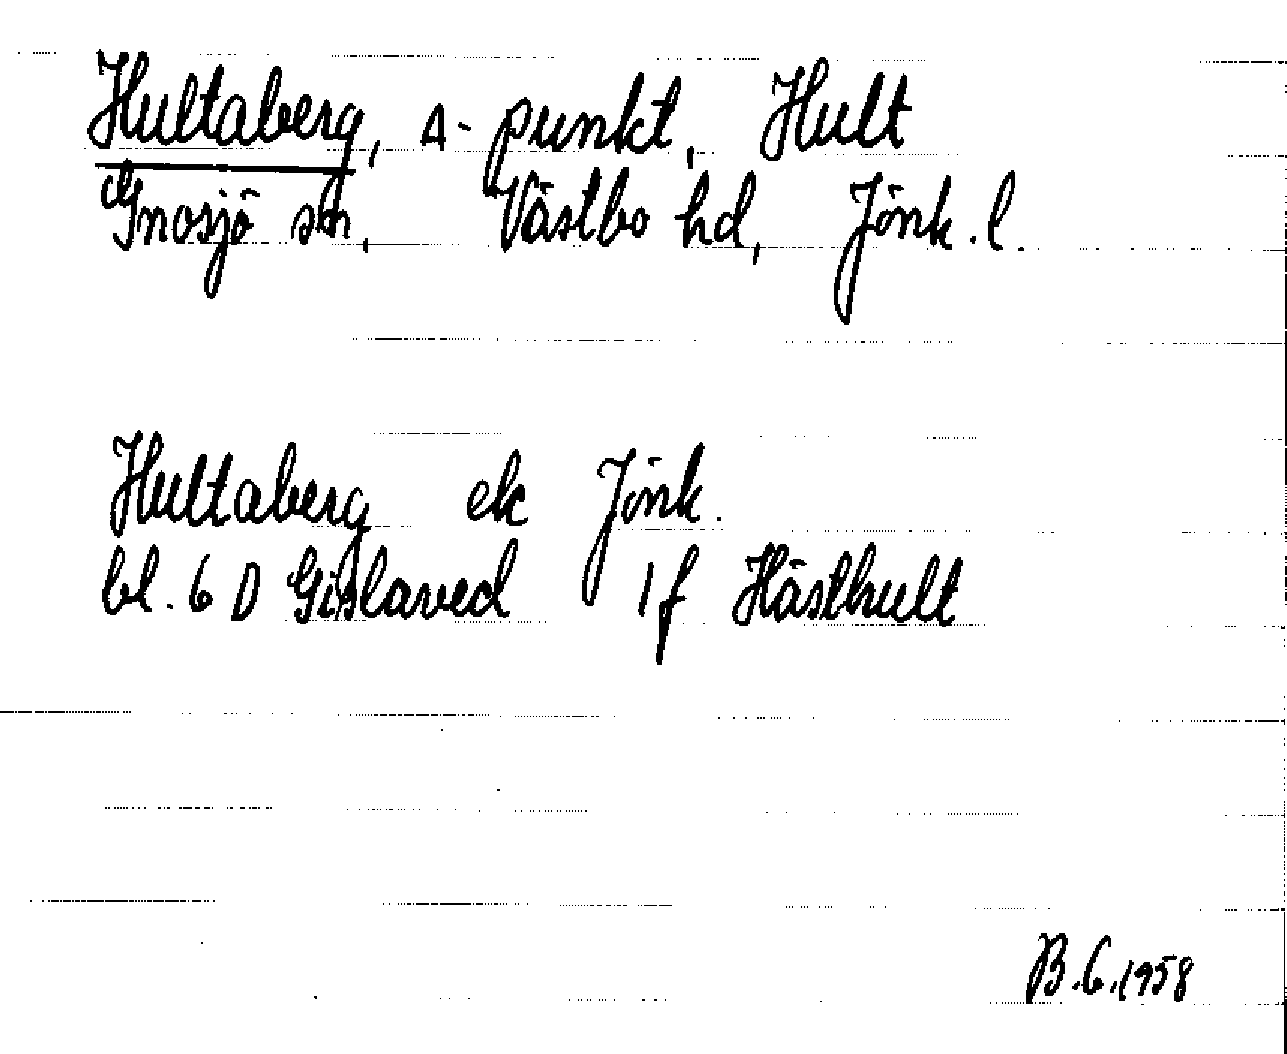 Hultaberg, Δ-punkt, Hult
Gnosjö sn, Västbo hd, Jönk.l.
Hultaberg ek Jönk.
bl. 6 D Gislaved 1f Hästhult
B.G.1958